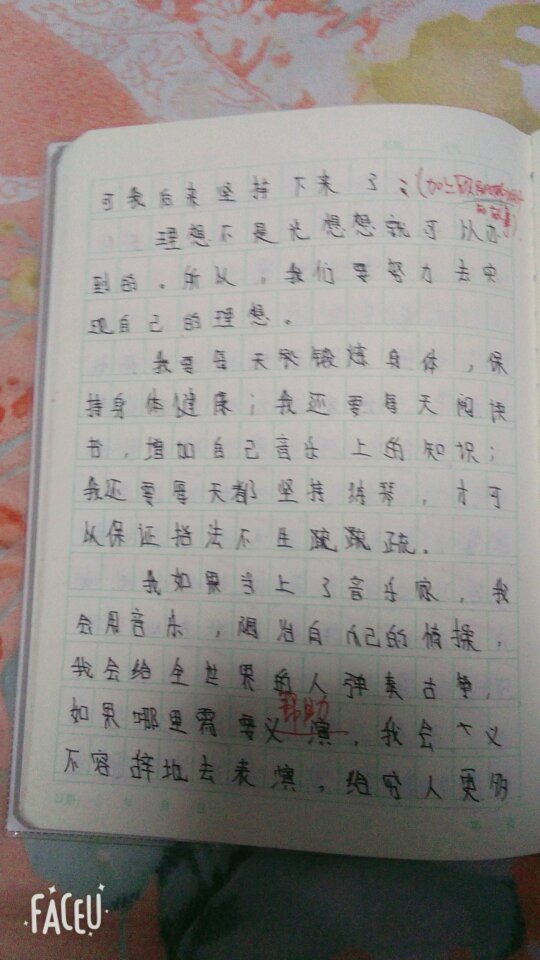 可我后来坚持下来了；(加上
理想不是光想想就可以办
到的。所以，我们要努力去实
现自己的理想。
我要每天坚锻炼身体，保
持身体健康；我还要每天阅读
书，增加自己音乐上的知识；
我还要每天都坚持练琴，才可
以保证指法不生疏
我如果当上了音乐家，我
会用音乐，陶冶自己的情操，
我会给全世界的人弹奏古筝，
帮助
如果哪里需要义演，我会大义
不容辞地去表演，给穷人更多
FACEU